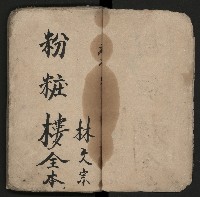 粉粧樓全本
林文宗